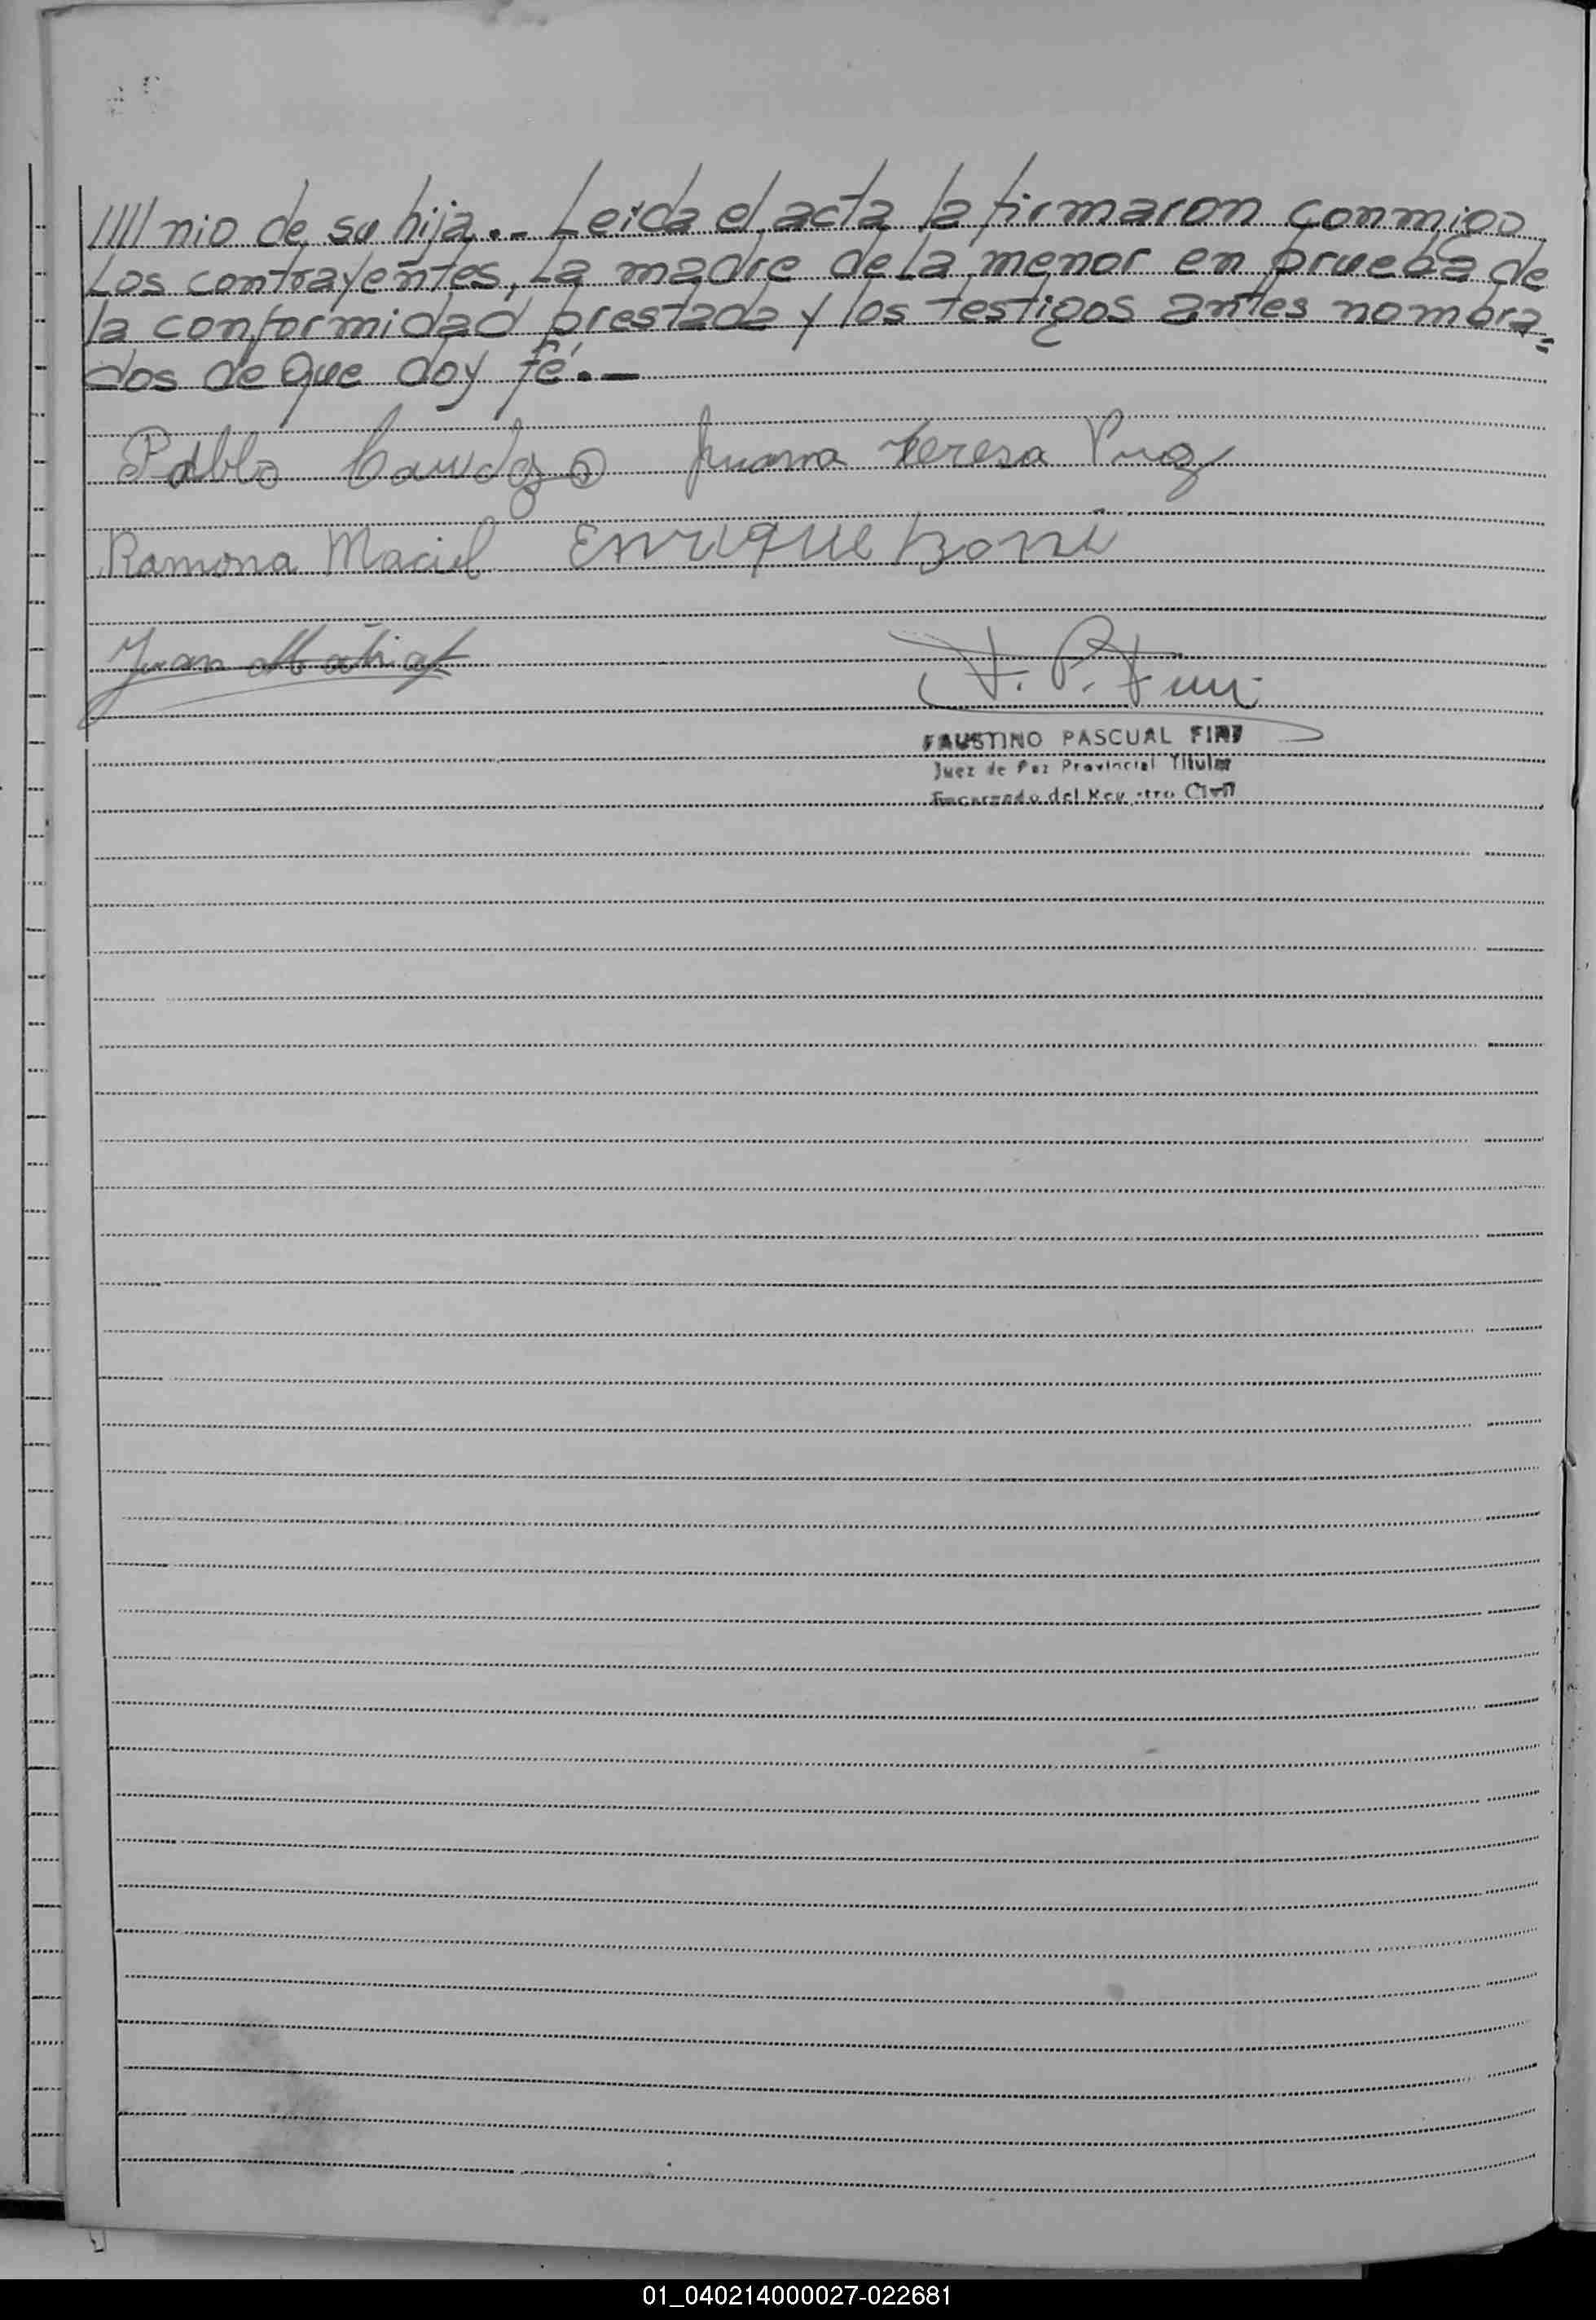 //// nio de su hija.- Leida el acta la firmaron conmigo
los contrayentes, la madre de la menor en prueba de
la conformidad prestada y los testigos antes nombra=
dos de que doy fé.-
Pablo Juana Teresa
Ramona Maciel Enrique
Juan
F. P. Fini
FAUSTINO PASCUAL FINI
Juez de Paz Provincial Titular
Encargado del Registro Civil
01_040214000027-022681